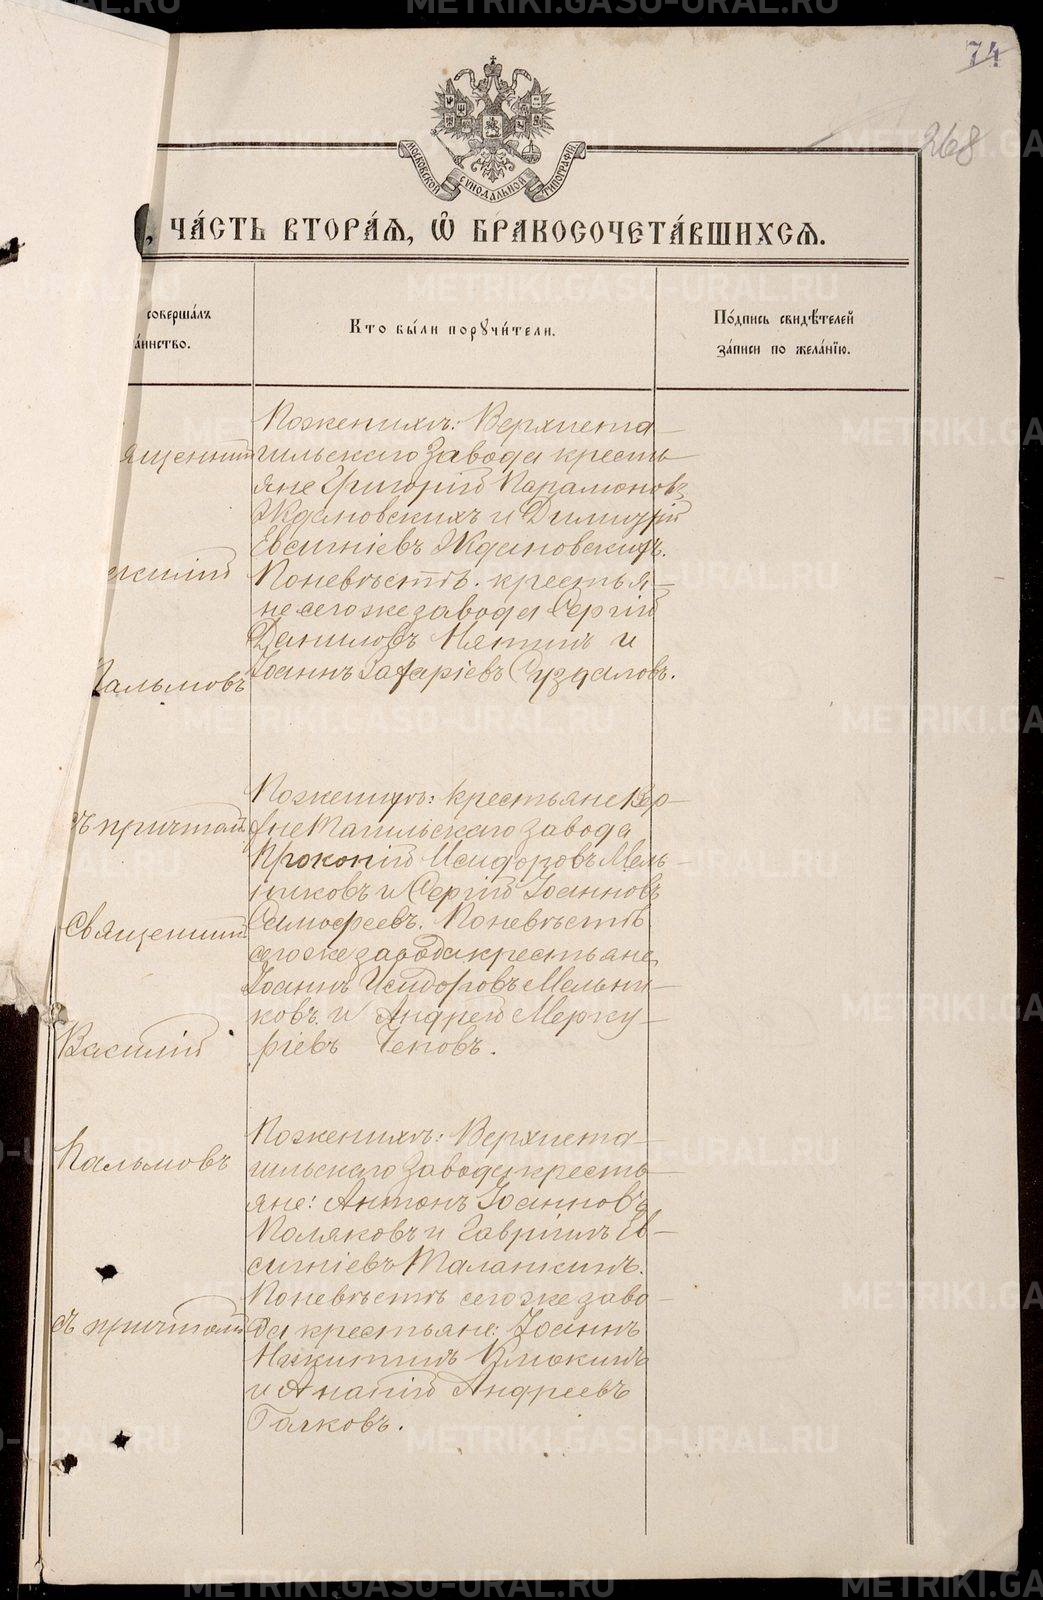 74
268
МОСКОВСКОЙ СѴНОДАЛЬНОЙ ТИПОГРАФІИ
, ЧА́СТЬ ВТОРА́Я, Ѡ҆ БРАКОСОЧЕТА́ВШИХСЯ.
соверша́лъ
а́инство.
Кто бы́ли порꙋчи́тели.
По́дпись свидѣ́телей
за́писи по жела́нїю.
По женихѣ: Верхнета-
гильскаго завода кресть-
яне Григорій Парамоновъ
Ждановскихъ и Димитрій
Евсигніевъ Ждановскихъ.
По невѣстѣ: крестья-
не сего же завода Сергій
Даниловъ Нятинъ и
Іоаннъ Захаріевъ Суздаловъ.
ященникъ
асилій
Пальмовъ
съ причтомъ
По женихѣ: крестьяне Вер-
хне Тагильскаго завода
Прокопій Исидоровъ Мель-
никовъ и Сергій Іоанновъ
Самофеевъ. По невѣстѣ
сего же завода крестьяне
Іоаннъ Исидоровъ Мельни-
ковъ и Андрей Мерку-
ріевъ Чековъ.
Священникъ
Василій
Пальмовъ
съ причтомъ
По женихѣ: Верхнета-
гильскаго завода кресть-
яне: Антонъ Іоанновъ
Поляковъ и Гавріилъ Ев-
сигніевъ Таланкинъ.
По невѣстѣ сего же заво-
да крестьяне: Іоаннъ
Никитинъ Клюкинъ
и Ананій Андреевъ
Галковъ.
METRIKI.GASO-URAL.RU